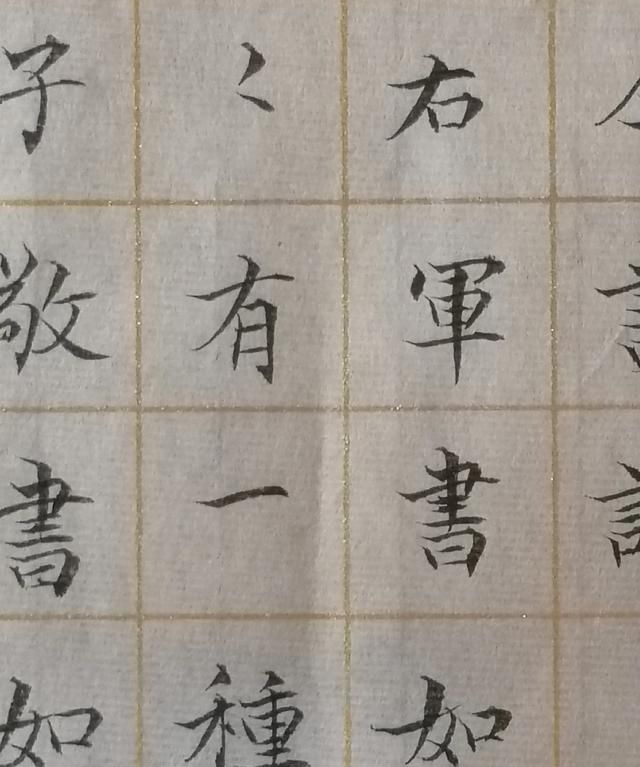 右軍書如
〻有一種
子敬書如